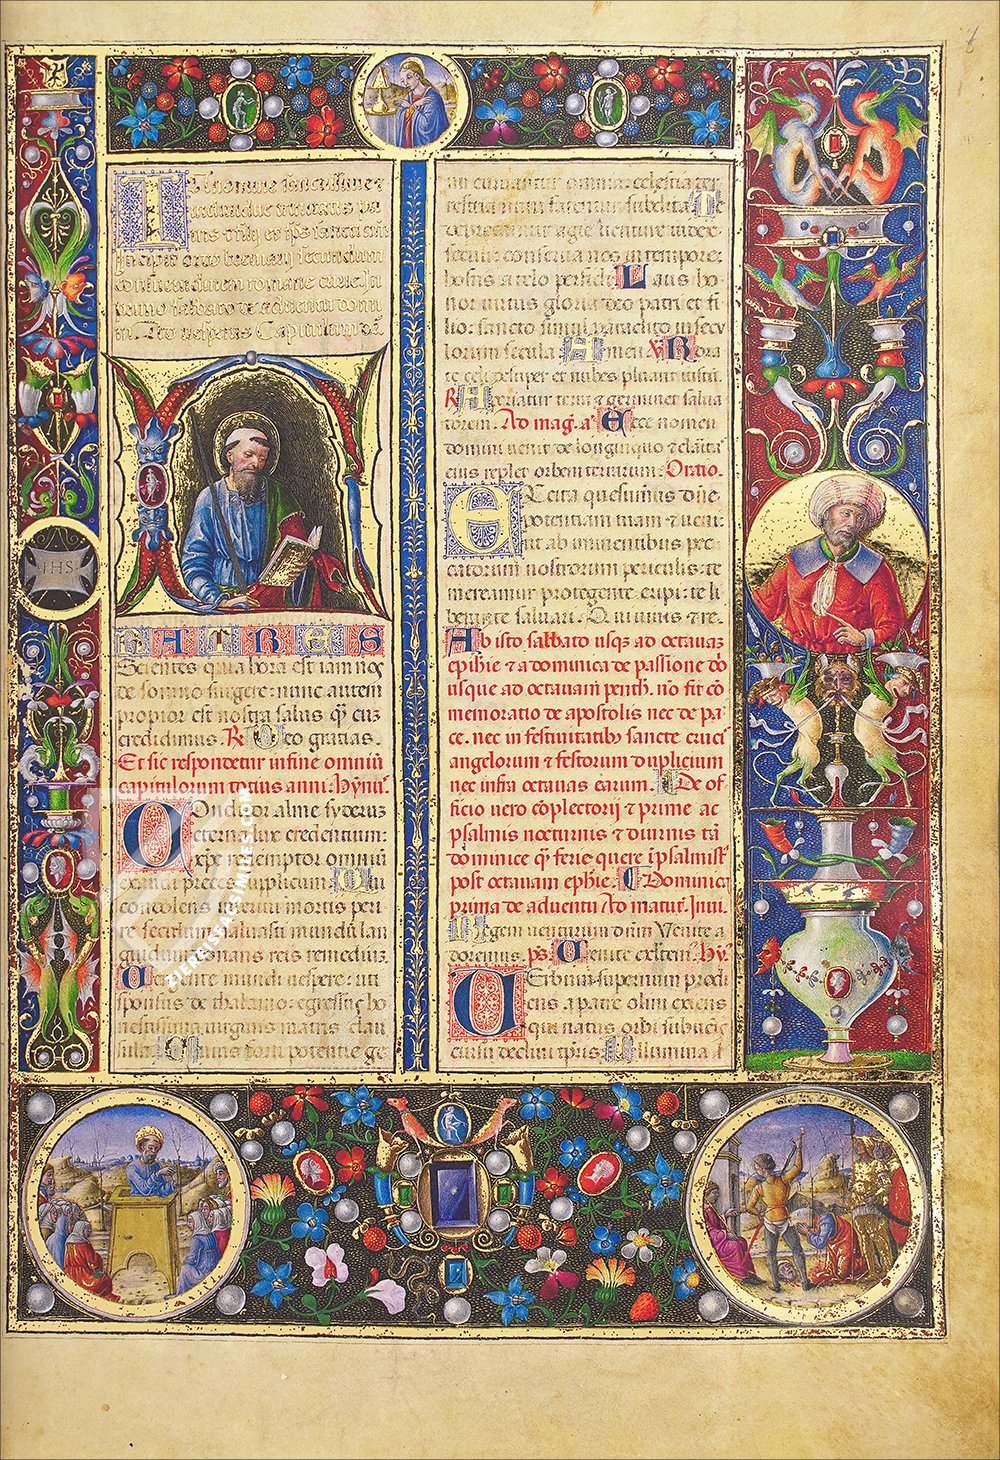 7
IHS
N nomine sancte &
individue
Incipit ordo breviarii secundum
consuetudinem romane curie. In
primo sabbato de adventu domi
ni. Ad vesperas Capitulum
FRATRES
Scientes quia hora est iam nos
de somno surgere: nunc autem
propior est nostra salus q̄ cuz
credidimus. R Deo gratias.
Et sic respondetur in fine omniū
capitulorum totius anni. hymnꝰ.
Onditor alme syderuz
eterna lux credentium:
xp̄e redemptor omniū
exaudi preces supplicum. Qui
condolens interitu mortis peri
re seculum: salvasti mundū lan
guidum donans reis remediuz.
Vergente mundi vespere: uti
sponsus de thalamo: egressus ho
nestissima virginis matris clau
sula. Cuius forti potentie ge
nu curvantur omnia: celestia ter
restria nutu fatentur subdita. Te
deprecamur agie venture iudex
seculi: conserva nos in tempore:
hostis a telo perfidi. Laus ho
nor virtus gloria: deo patri et fi
lio: sancto simul paraclito: in secu
lorum secula. Amen. V Rora
te celi desuper et nubes pluant iustū.
R Aperiatur terra & germinet salva
torem. Ad mag. aꝰ Ecce nomen
domini venit de longinquo & claritas
eius replet orbem terrarum. Oratio.
EXcita quesumus dn̄e
potentiam tuam & veni:
ut ab imminentibus pec
catorum nostrorum periculis: te
mereamur protegente eripi: te li
berante salvari. Qui vivis & re.
Ab isto sabbato usqꝫ ad octavaz
epiphīe & a dominica de passione
usque ad octavam penth. nō fit cō
memoratio de apostolis nec de pa
ce. nec in festivitatibꝰ sancte crucis
angelorum & festorum duplicium
nec infra octavas earum. De of
ficio vero cōplectorii & prime ac
psalmis nocturnis & diurnis tā
dominice q̄ ferie quere ī psalmist̄
post octavam ephīe. Dominica
prima de adventu Ad matut. Invi.
Regem venturum dn̄m Venite a
doremus. ps. Venite exultem. hyꝰ
VErbum supernum prodi
ens a patre olim exiens
qui natus orbi subvenis
cursu declivi tp̄ris. Illumina
ZIEREISFACSIMILES.COM